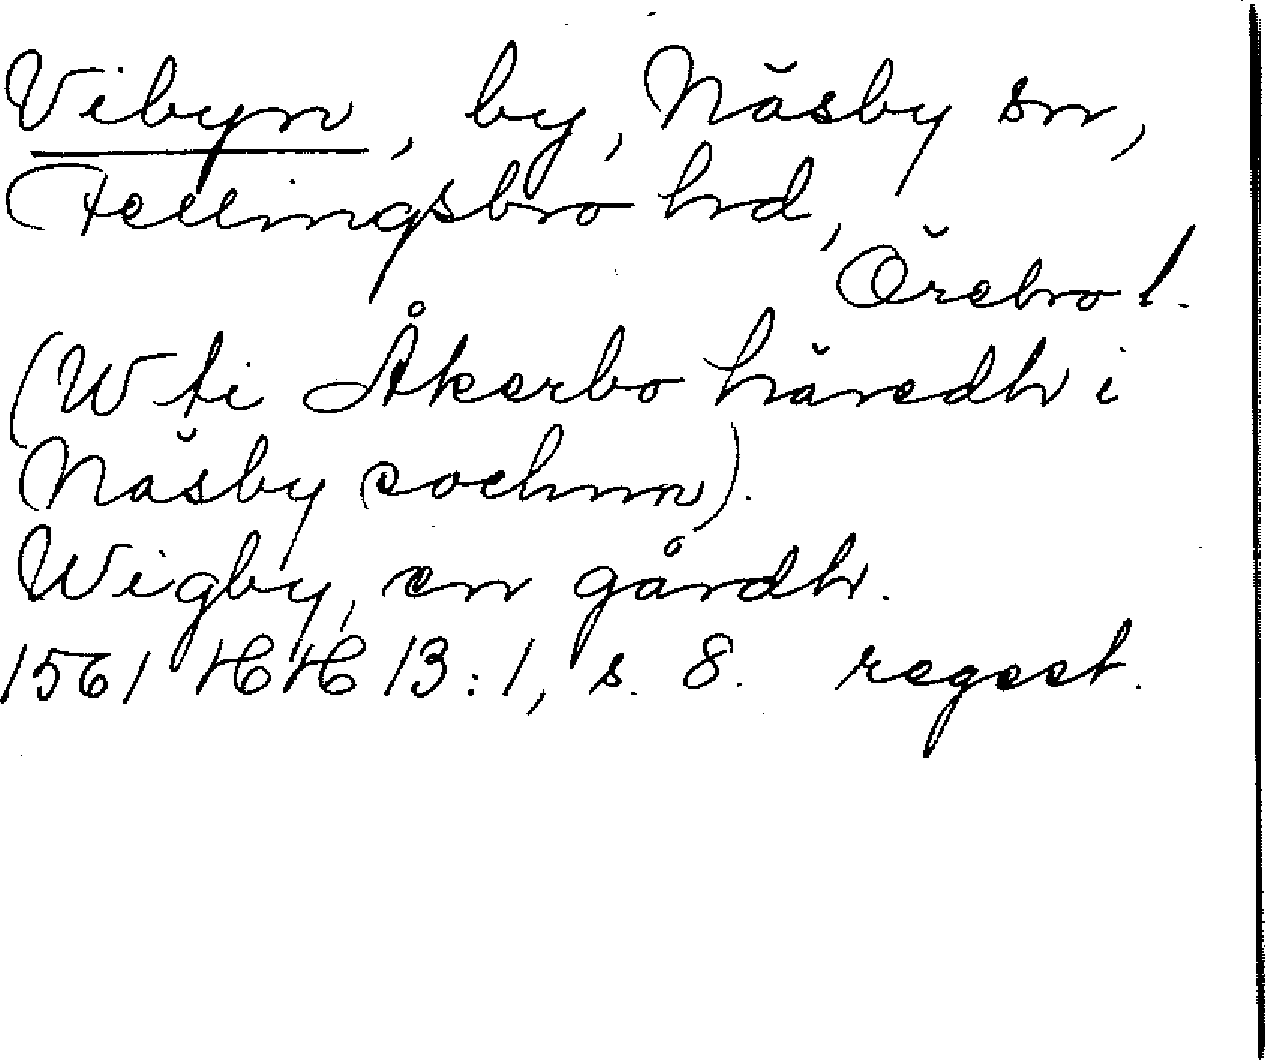 Vibyn, by, Näsby sn,
Fellingsbro hrd,
Örebro l.
(W ti Åkerbo häredh i
Näsby sochnn).
Wigby, en gårdh.
1561 HH 13:1, s. 8. regest.